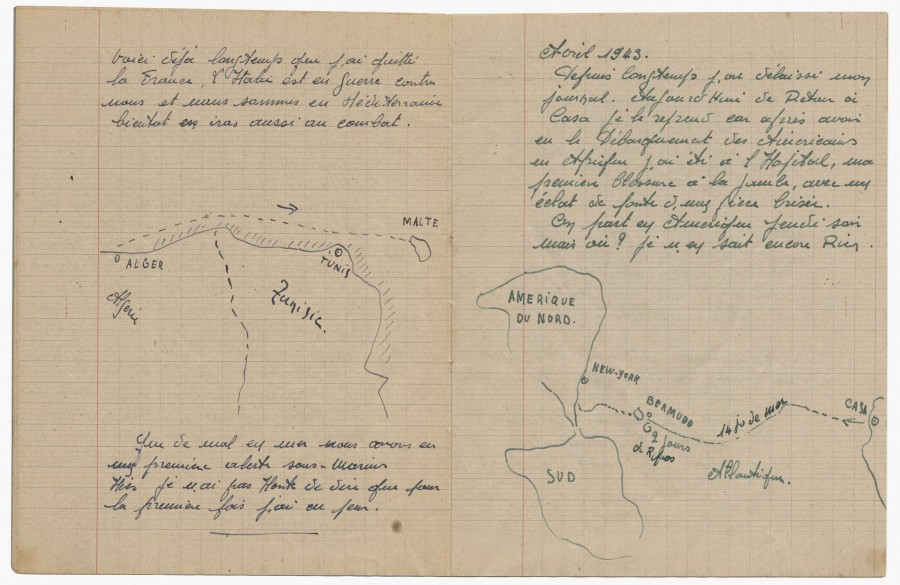 Voici déjà longtemps que j'ai quitté
la France, l'Italie est en guerre contre
nous et nous sommes en Méditerranée
bientot en iras aussi au combat.
MALTE
ALGER
TUNIS
Algérie
Tunisie.
Que de mal en mer nous avons eu
une première alerte sous-Marins
Hier je n'ai pas Honte de dire que pour
la première fois j'ai eu peur.
Avril 1943.
Depuis longtemps j'ai délaissé mon
journal. Aujourd'Hui de Retour à
Casa je le reprend car après avoir
eu le Débarquement des Américains
en Afrique j'ai été à l'Hopital, ma
première blessure à la jambe, avec un
éclat de fonte d'une pièce brisée.
On part en Amérique Jeudi soir
mais où? je n'en sait encore Rien.
AMERIQUE
DU NORD.
NEW-YORK
BERMUDE
2 jours
de Repos
14 jrs de mer
CASA
Atlantique.
SUD